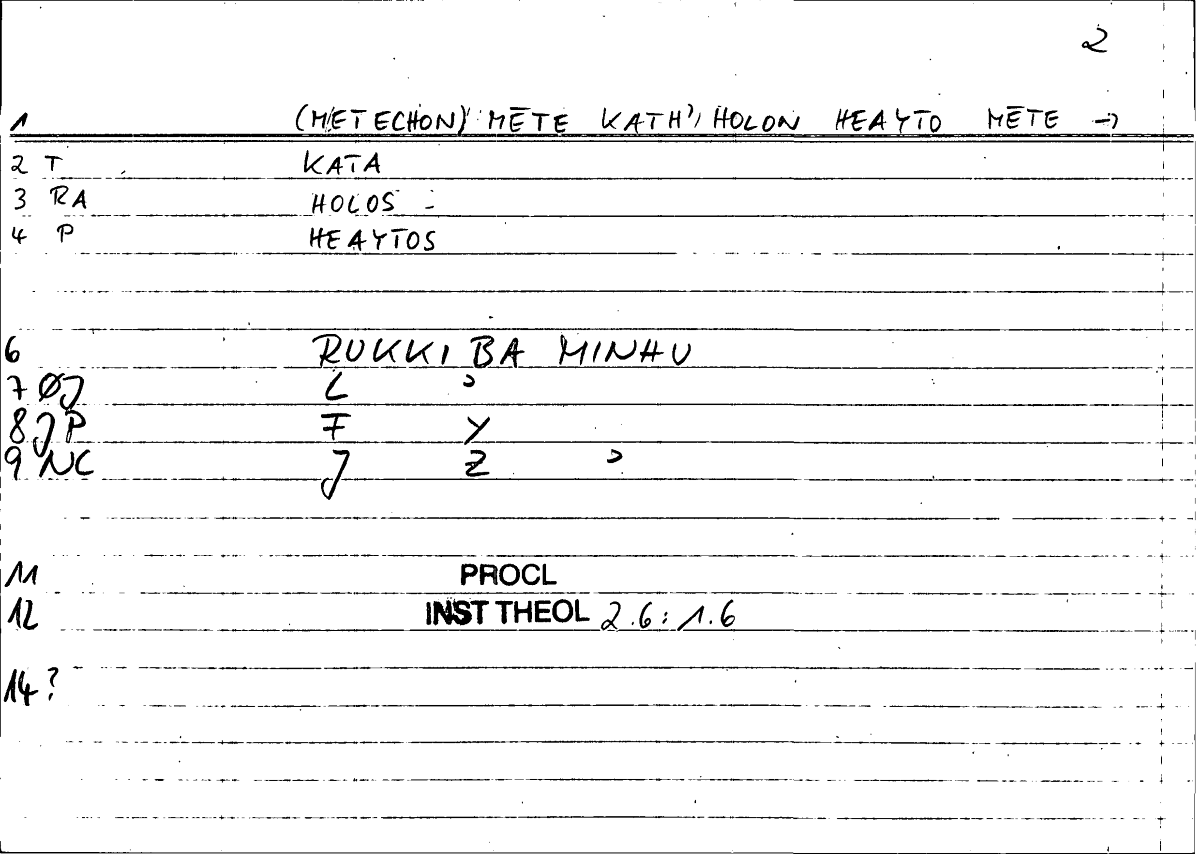 2
1 (METECHON) MĒTE KATH'/ HOLON HEAYTO MĒTE →
2 T KATA
3 RA HOLOS -
4 P HEAYTOS
6 RUKKIBA MINHU
7 ØJ L ʾ
8 JP F Y
9 NC J Z ʾ
11 PROCL
12 INST THEOL 2.6: 1.6
14?